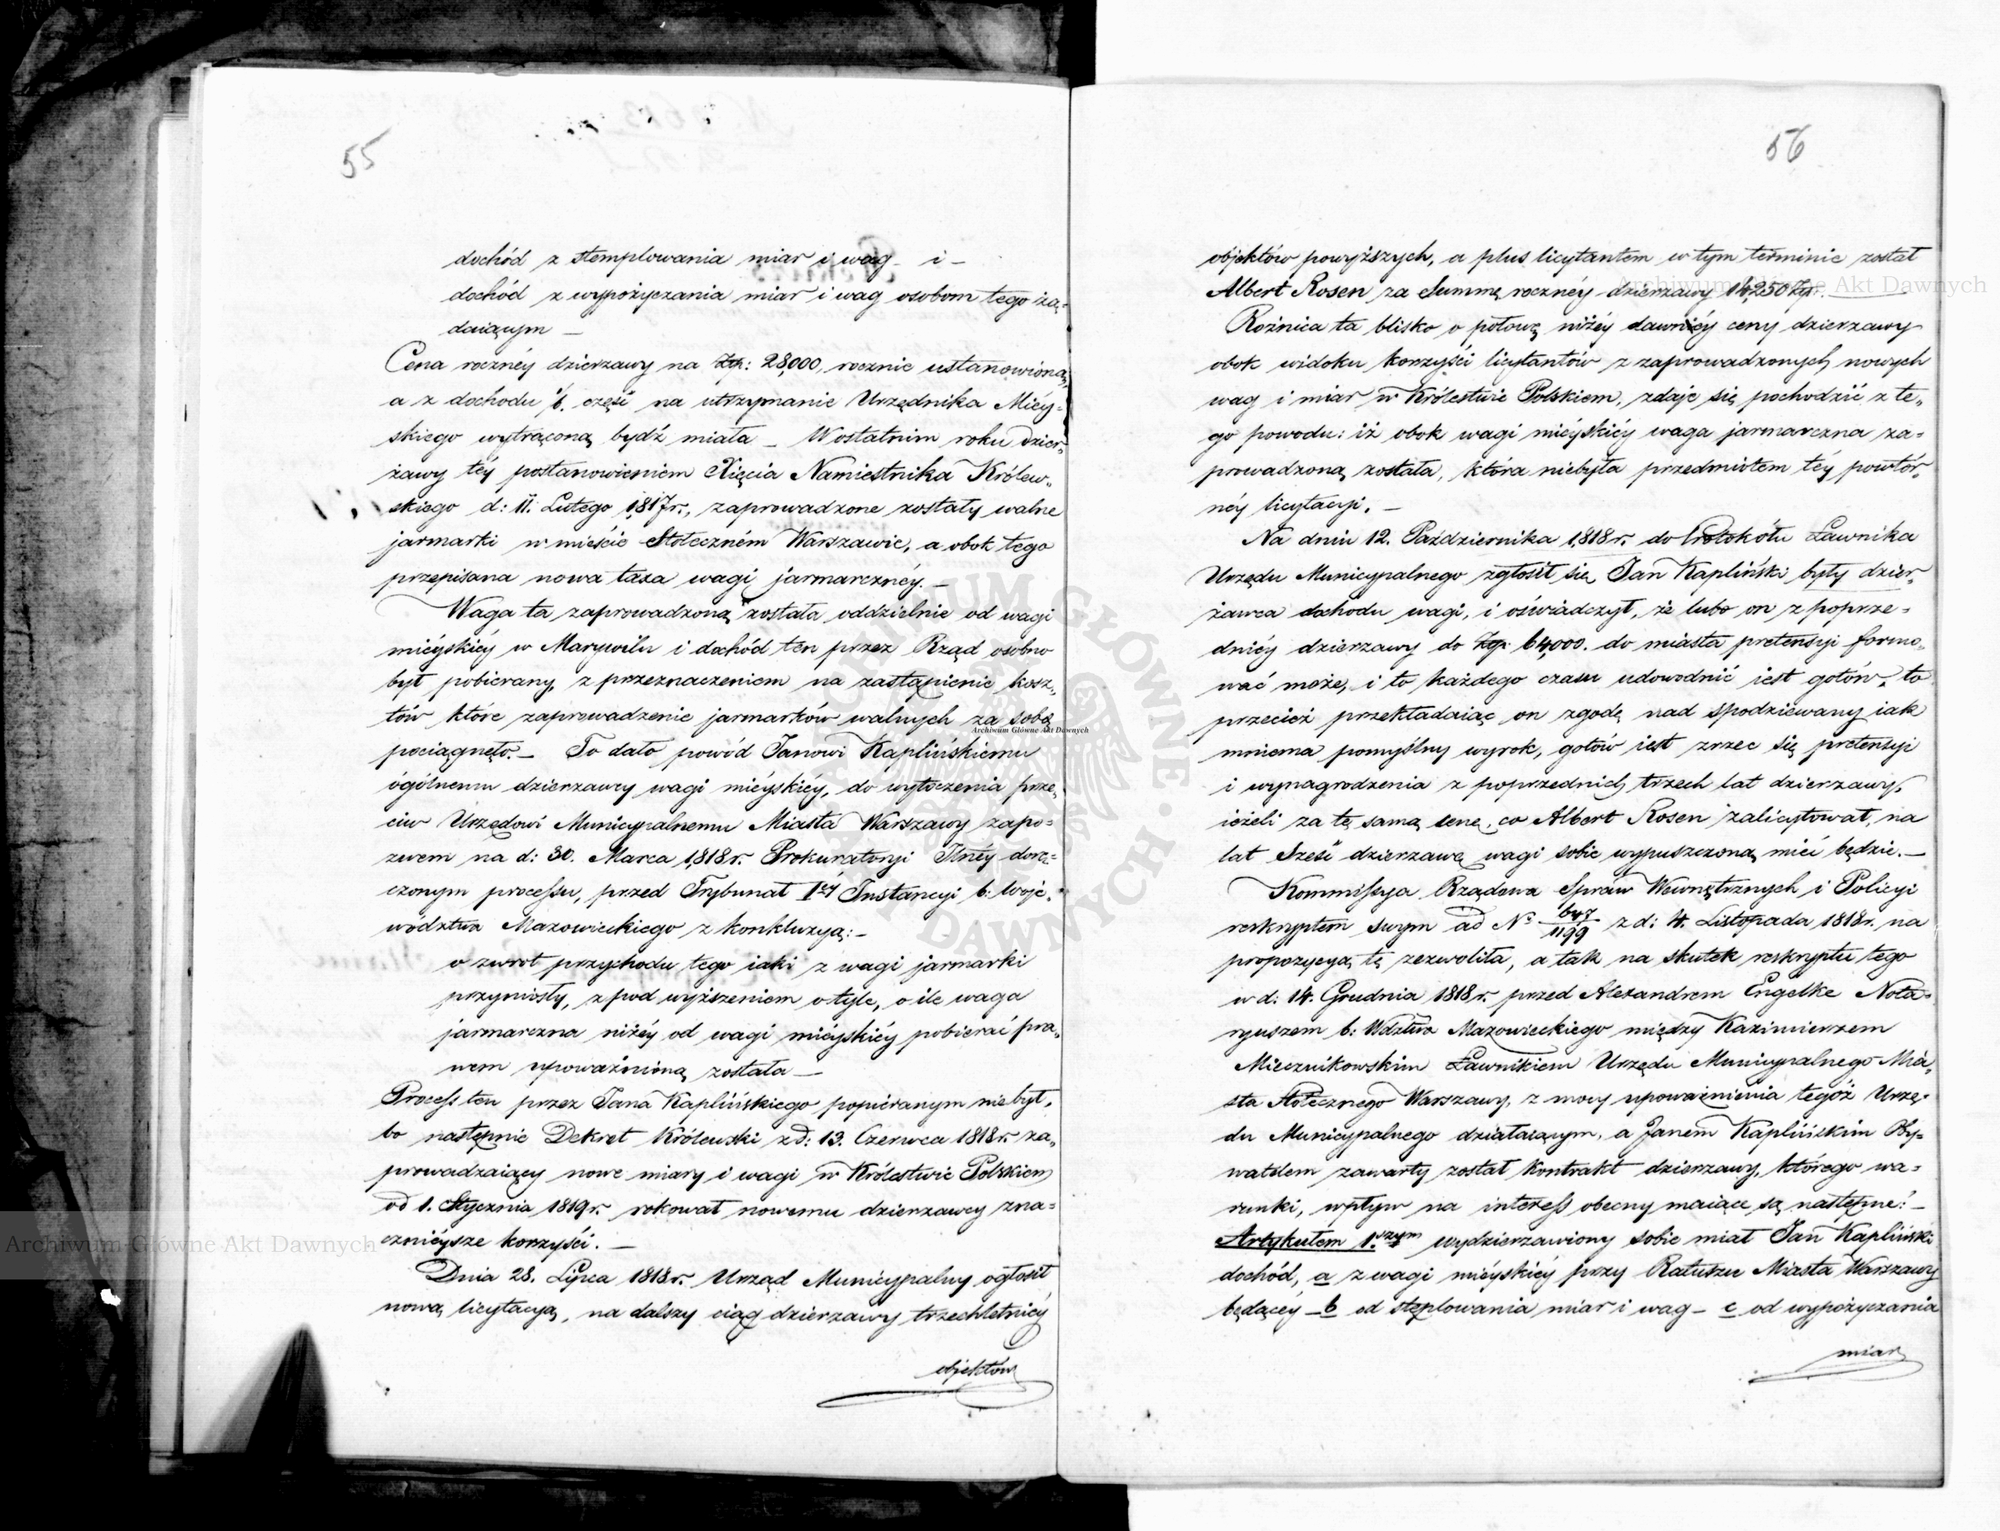 55
dochód z stemplowania miar i wag – i –
dochód z wypożyczania miar i wag osobom tego żą-
daiącym –
Cena rocznéy dzierzawy na Złp: 28,000, rocznie ustanowioną
a z dochodu 1/6. część na utrzymanie Urzędnika Miéy-
skiego wytrąconą bydź miała – W ostatnim roku dzier-
żawy téy postanowieniem Xięcia Namiestnika Królew-
skiego d: 11. Lutego 1817 r., zaprowadzone zostały walne
jarmarki w mieście Stołeczném Warszawie, a obok tego
przepisana nowa taxa wagi jarmarcznéy. –
Waga ta zaprowadzoną została oddzielnie od wagi
miéyskiéy w Marywilu i dochód ten przez Rząd osobno
był pobiérany, z przeznaczeniem na zastąpienie kosz-
tów które zaprowadzenie jarmarków walnych za sobą
pociągnęło. – To dało powód Janowi Kaplińskiemu
ogólnemu dzierzawcy wagi miéyskiéy, do wytoczenia prze-
ciw Urzędowi Municypalnemu Miasta Warszawy zapo-
zwem na d: 30. Marca 1818 r. Prokuratoryi Jlnéy dorę-
czonym processu, przed Trybunał 1éy Instancyi b: Woje-
wództwa Mazowieckiego z konkluzyą: –
o zwrot przychodu tego iaki z wagi jarmarki
przyniosły, z pod wyższeniem o tyle, o ile waga
jarmarczna niżéy od wagi miéyskiéy pobierać pra-
wem upoważnioną została –
Process ten przez Jana Kaplińskiego popiéranym nie był,
bo następnie Dekret Królewski z d: 13. Czerwca 1818 r. za-
prowadzaiący nowe miary i wagi w Królestwie Polskiem
od 1. Stycznia 1819 r. rokował nowemu dzierzawcy zna-
czniéysze korzyści. –
Dnia 28. Lipca 1818 r. Urząd Municypalny ogłosił
nową licytacyą, na dalszy ciąg dzierzawy trzechletniéy
objektów
56
objektów powyższych, a plus licytantem w tym terminie został
Albert Rosen za Summę rocznéy dzierzawy 14,250 Złp.
Roźnica ta blisko o połowę niżéy dawniéy ceny dzierzawy
obok widoku korzyści licytantów z zaprowadzonych nowych
wag i miar w Królestwie Polskiem, zdaje się pochodzić z te-
go powodu: iż obok wagi miéyskiéy waga jarmarczna za-
prowadzoną została, która niebyła przedmiotem téy powtór-
néy licytacyi. –
Na dniu 12. Października 1818 r. do Protokółu Ławnika
Urzędu Municypalnego zgłosił się Jan Kapliński były dzier-
żawca dochodu wagi, i oświadczył, że lubo on z poprze-
dniéy dzierzawy do Złp. 64,000. do miasta pretensyi formo-
wać może, i to każdego czasu udowodnić iest gotów, to
przecież przekładaiąc on zgodę nad spodziewany iak
mniema pomyślny wyrok, gotów iest zrzec się pretensyi
i wynagrodzenia z poprzednich trzech lat dzierzawy,
ieżeli za tę samą cenę, co Albert Rosen zalicytował, na
lat Sześć dzierzawę wagi sobie wypuszczoną mieć będzie. –
Kommissya Rządowa Spraw Wewnętrznych i Policyi
reskryptem swym ad No 647/1199 z d: 4. Listopada 1818 r. na
propozycyą tę zezwoliła, a tak na skutek reskryptu tego
w d: 14. Grudnia 1818 r. przed Alexandrem Engelke Nota-
ryuszem b: Wdztwa Mazowieckiego między Kazimierzem
Miecznikowskim Ławnikiem Urzędu Municypalnego Mia-
sta Stołecznego Warszawy, z mocy upoważnienia tegoż Urzę-
du Municypalnego działaiącym, a Janem Kaplińskim Oby-
watelem zawarty został kontrakt dzierzawy, którego wa-
runki, wpływ na interess obecny maiące są następne: –
Artykułem 1.szym wydzierzawiony sobie miał Jan Kapliński
dochód, a z wagi miéyskiéy przy Ratuszu Miasta Warszawy
będącéy – b od stęplowania miar i wag – c od wypożyczania
miar
Archiwum Główne Akt Dawnych
Archiwum Główne Akt Dawnych
Archiwum Główne Akt Dawnych
ARCHIWUM GŁÓWNE AKT DAWNYCH